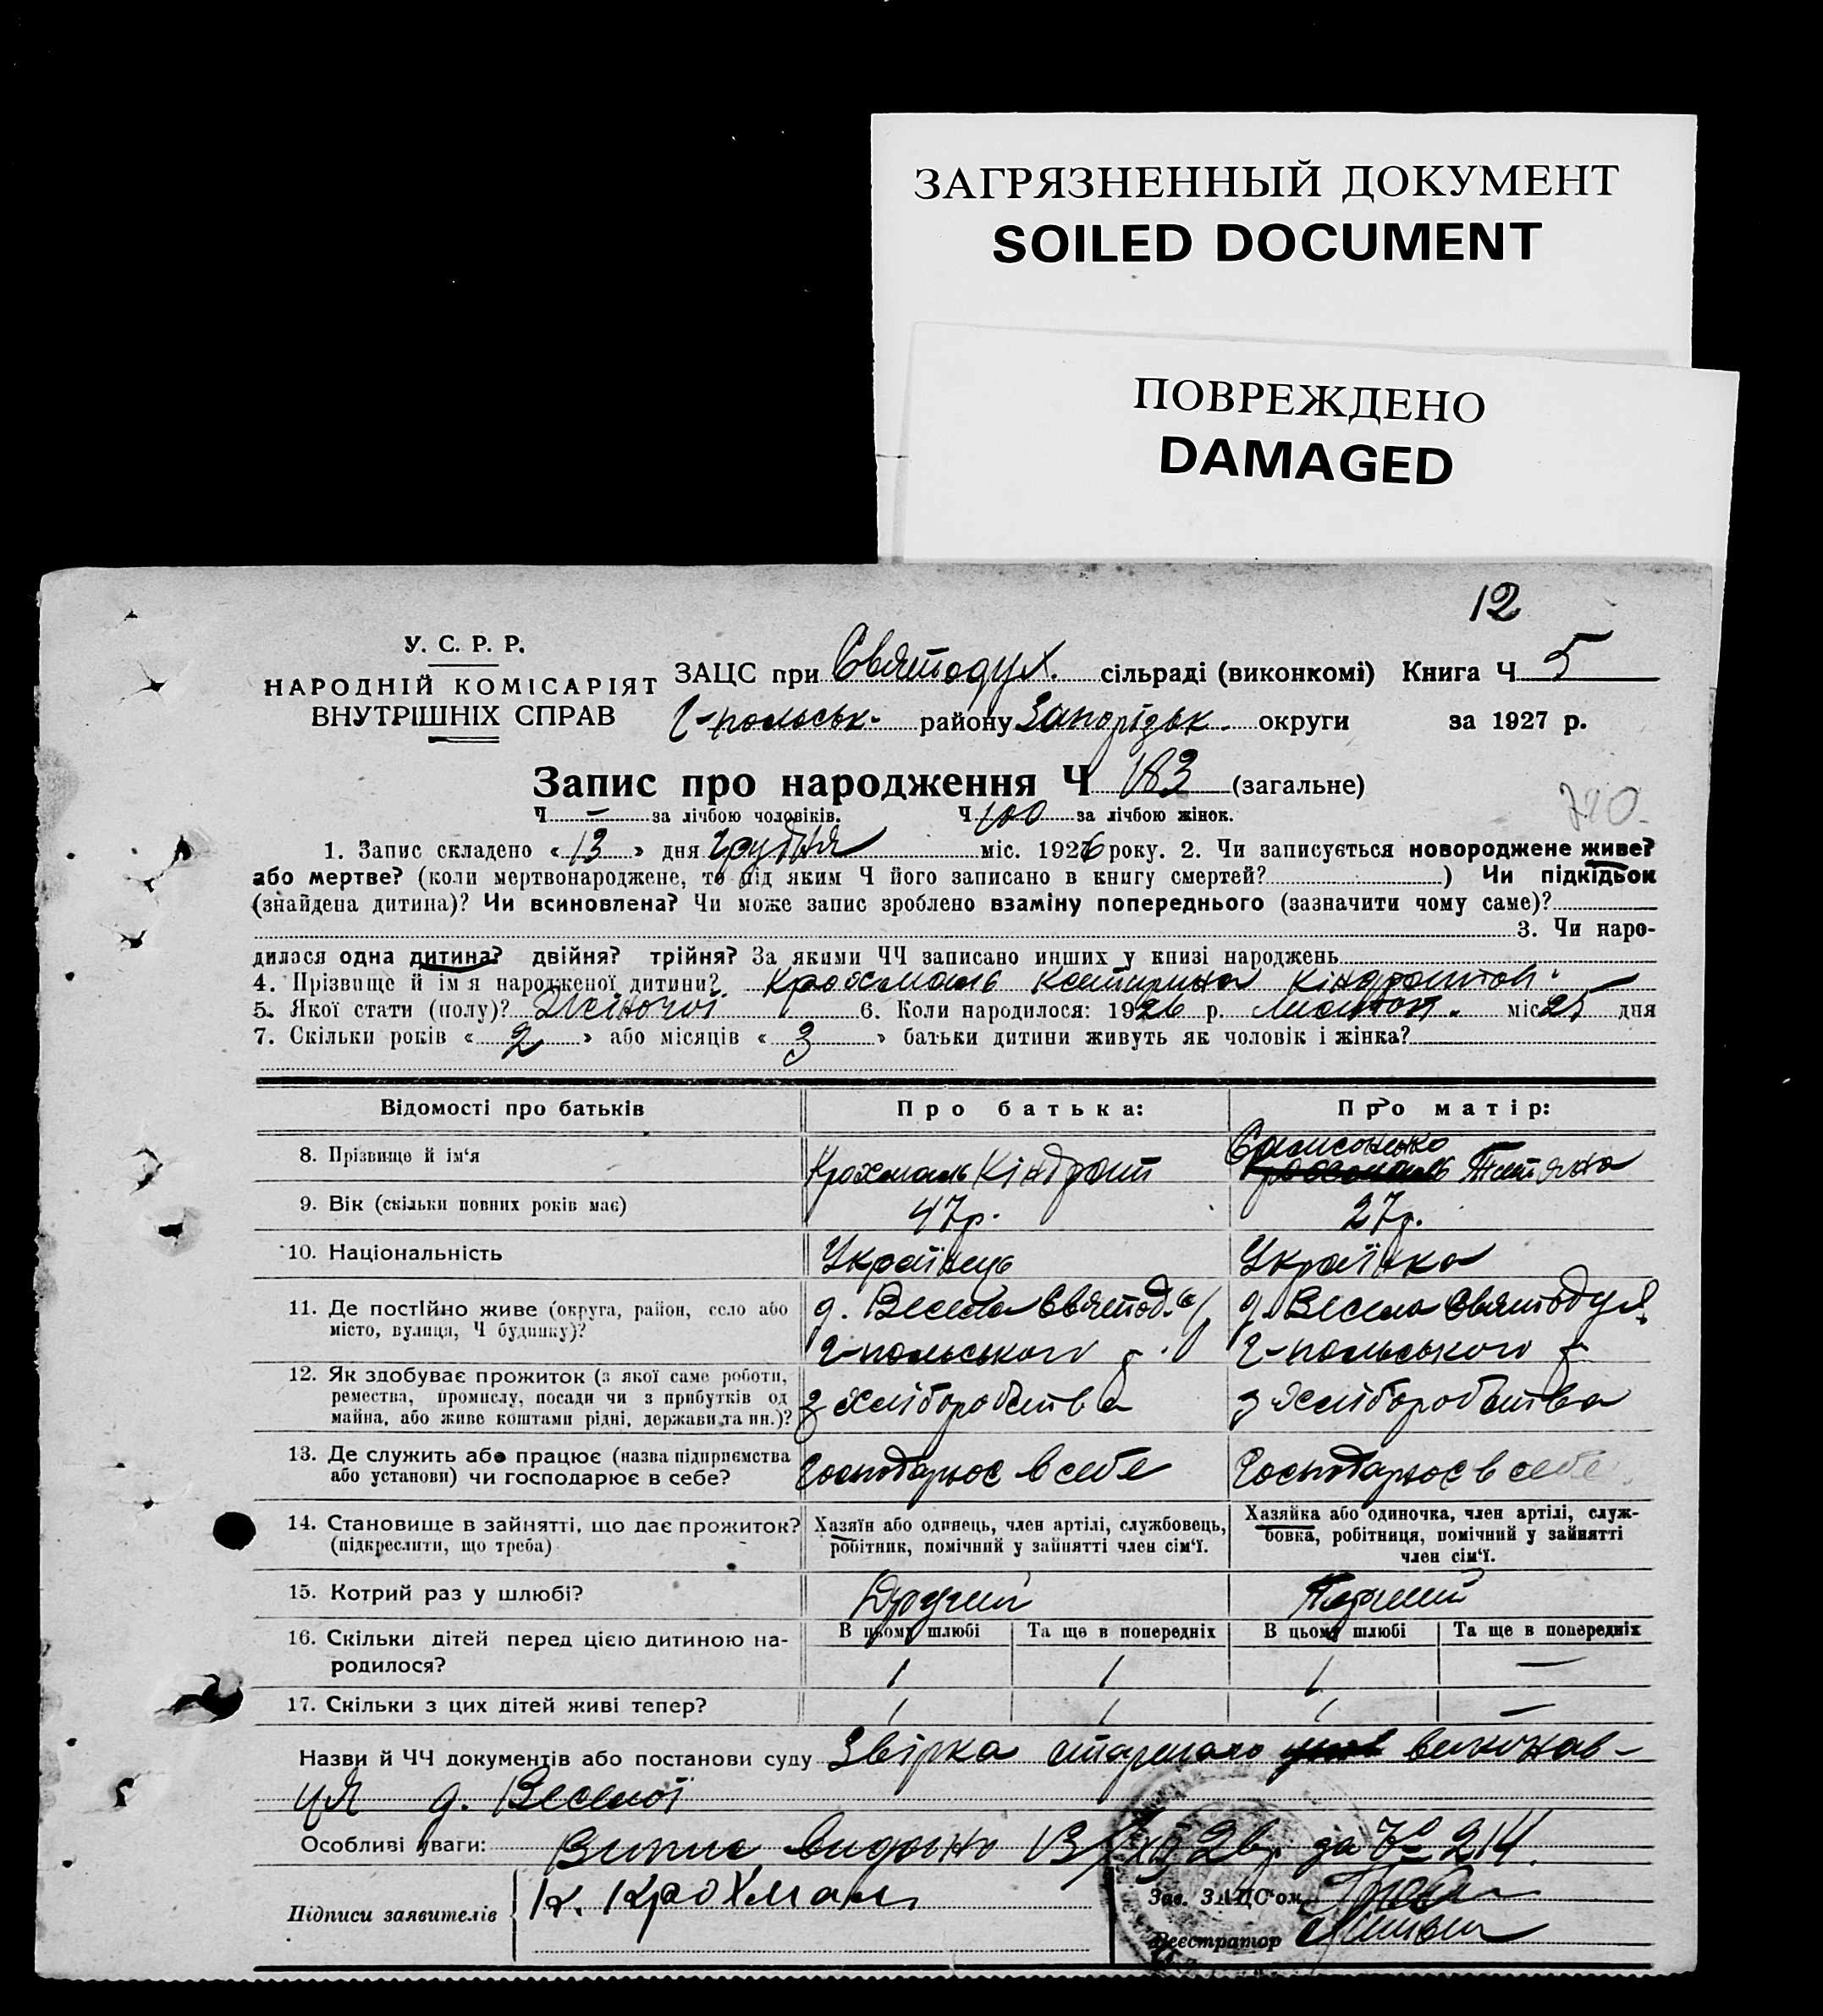 ЗАГРЯЗНЕННЫЙ ДОКУМЕНТ
SOILED DOCUMENT
ПОВРЕЖДЕНО
DAMAGED
12
У. С. Р. Р.
НАРОДНІЙ КОМІСАРІЯТ
ВНУТРІШНІХ СПРАВ
ЗАЦС при Святодух. сільраді (виконкомі) Книга Ч 5
Г-польськ. району Запорізьк. округи за 1927 р.
Запис про народження Ч 183 (загальне)
Ч — за лічбою чоловіків. Ч 100 за лічбою жінок.
1. Запис складено « 13 » дня грудня міс. 1926 року. 2. Чи записується новороджене живе?
або мертве? (коли мертвонароджене, то під яким Ч його записано в книгу смертей? ) Чи підкідьок
(знайдена дитина)? Чи всиновлена? Чи може запис зроблено взаміну попереднього (зазначити чому саме)?
3. Чи наро-
дилася одна дитина? двійня? трійня? За якими ЧЧ записано инших у книзі народжень
4. Прізвище й ім'я народженої дитини? Крохмаль Катирина Кіндратов.
5. Якої стати (полу)? Жіночої 6. Коли народилося: 1926 р. Листоп. міс 25 дня
7. Скільки років « 2 » або місяців « 3 » батьки дитини живуть як чоловік і жінка?
Відомості про батьків Про батька: Про матір:
8. Прізвище й ім'я Крохмаль Кіндрат Тетяна
9. Вік (скільки повних років має) 47р. 27р.
10. Національність Українець Українка
11. Де постійно живе (округа, район, село або
місто, вулиця, Ч будинку)?
д. Весела Святод. с/
Г-польського р.
д. Весела Святодух.
Г-польського р
12. Як здобуває прожиток (з якої саме роботи,
ремества, промислу, посади чи з прибутків од
майна, або живе коштами рідні, держави та ин.)?
З Хліборобства
З Хліборобства
13. Де служить або працює (назва підприємства
або установи) чи господарює в себе?
Господарює в себе
Господарює в себе
14. Становище в зайнятті, що дає прожиток?
(підкреслити, що треба)
Хазяїн або одинець, член артілі, службовець,
робітник, помічний у зайнятті член сім'ї.
Хазяйка або одиночка, член артілі, служ-
бовка, робітниця, помічний у зайнятті
член сім'ї.
15. Котрий раз у шлюбі? Другий Перший
16. Скільки дітей перед цією дитиною на-
родилося?
В цьому шлюбі Та ще в попередніх В цьому шлюбі Та ще в попередніх
1 1 1 —
17. Скільки з цих дітей живі тепер? 1 1 1 —
Назви й ЧЧ документів або постанови суду Звірка старшого виконав-
ця д. Веселої
Особливі уваги: Випис видано 13/XII 26р. за № 214.
Підписи заявителів К. Крохмаль
Зав. ЗАЦС'ом
Реєстратор